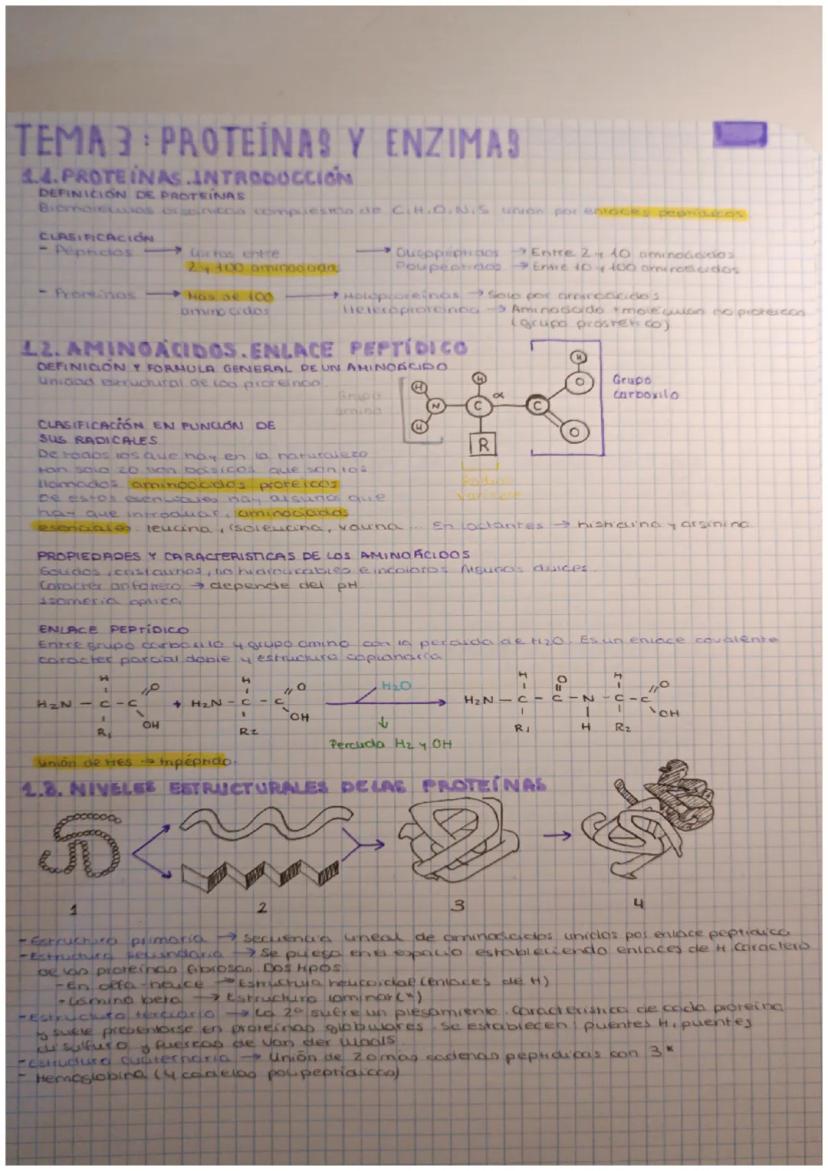 TEMA 3: PROTEÍNAS Y ENZIMAS
1.1. PROTEÍNAS. INTRODUCCIÓN
DEFINICIÓN DE PROTEÍNAS
Biomoléculas orgánicas compuestas de C, H, O, N, S unión por enlaces peptídicos
CLASIFICACIÓN
- Péptidos → Cortas entre → Oligopéptidos → Entre 2 y 10 aminoácidos
2 y 100 aminoácidos Polipéptidos → Entre 10 y 100 aminoácidos
- Proteínas → Más de 100 → Holoproteínas → Solo por aminoácidos
aminoácidos Heteroproteínas → Aminoácido + moléculas no proteicas
(grupo prostético)
1.2. AMINOÁCIDOS. ENLACE PEPTÍDICO
DEFINICIÓN Y FORMULA GENERAL DE UN AMINOÁCIDO
Unidad estructural de las proteínas.
Grupo
amino
H
H
N
H
C
α
R
C
O
H
O
Grupo
carboxilo
Radical
Variable
CLASIFICACIÓN EN FUNCIÓN DE
SUS RADICALES
De todos los que hay en la naturaleza
tan solo 20 son básicos que son los
llamados aminoácidos proteicos
De estos esenciales hay alguno que
hay que introducir, aminoácidos
esenciales: leucina, isoleucina, valina... En lactantes → histidina y arginina.
PROPIEDADES Y CARACTERISTICAS DE LOS AMINOÁCIDOS
Sólidos, cristalinos, no hidrolizables e incoloros. Algunos dulces.
Carácter anfótero → depende del pH
Isomería óptica
ENLACE PEPTÍDICO
Entre grupo carboxilo y grupo amino con la perdida de H2O. Es un enlace covalente
carácter parcial doble y estructura coplanaria
H H H2O H O H
H2N - C - C O OH + H2N - C - C O OH → H2N - C - C - N - C - C O OH
R1 R2 R1 H R2
Perdida H2 y OH
Unión de tres → tripéptido.
1.3. NIVELES ESTRUCTURALES DE LAS PROTEÍNAS
1 2 3 4
- Estructura primaria → Secuencia lineal de aminoácidos unidos por enlace peptídico
- Estructura secundaria → Se pliega en el espacio estableciendo enlaces de H. Caracterís
de las proteínas fibrosas. Dos tipos
- En alfa-hélice → Estructura helicoidal (enlaces de H)
- Lámina beta → Estructura laminar (")
- Estructura terciaria → La 2º sufre un plegamiento. Característica de cada proteína
y suele presentarse en proteínas globulares. Se establecen: puentes H, puentes
disulfuro y fuerzas de Van der Waals
- Estructura cuaternaria → Unión de 2 o mas cadenas peptídicas con 3ª
- Hemoglobina (4 cadenas polipeptídicas)